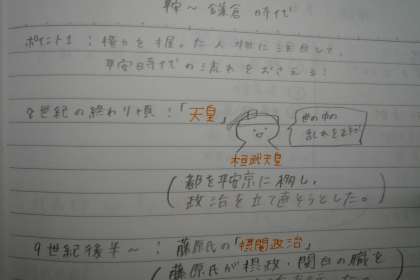 平安〜鎌倉時代
ポイント1：権力を握った人物に注目して、
平安時代の流れをおさえる！
8世紀の終わり頃：「天皇」
世の中の
乱れを正すぞ
桓武天皇
(都を平安京に移し、
政治を立て直そうとした。)
9世紀後半〜：藤原氏の「摂関政治」
(藤原氏が摂政・関白の職を